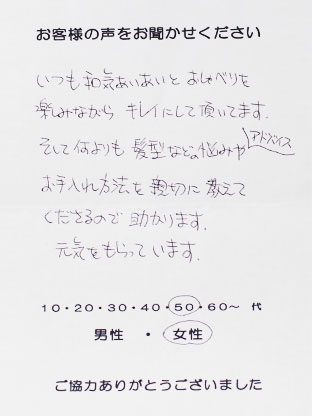 お客様の声をお聞かせください
いつも和気あいあいと おしゃべりを
楽しみながら キレイにして頂いてます。
そして何よりも 髪型などの悩みや アドバイス
お手入れ方法を 親切に 教えて
くださるので 助かります。
元気をもらっています。
10・20・30・40・50・60～ 代
男性 ・ 女性
ご協力ありがとうございました